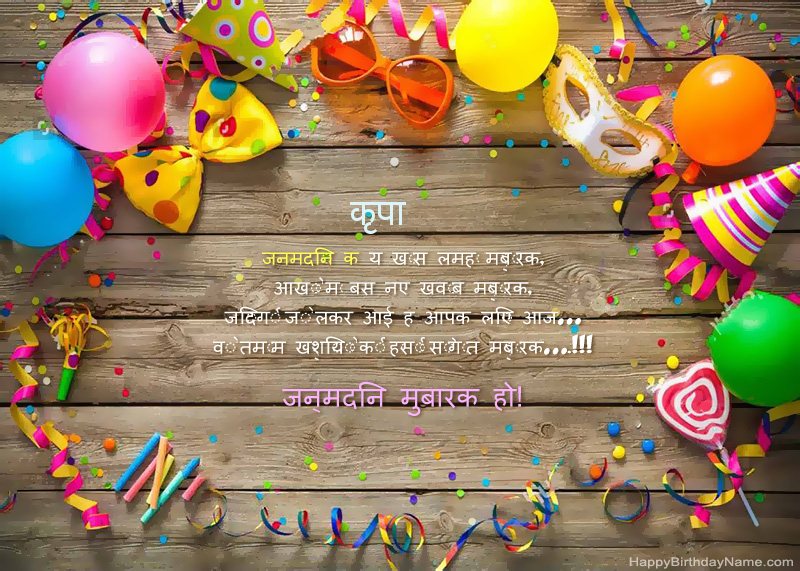 कृपा
जनमदनि क य खास लमह मबारक,
आखोम बस नए खवाब मबारक,
जदिगी जो लेकर आई ह आपक लएि आज...
वो तमाम खशयिो की हसी सोगात मबारक...!!!
जन्मदनि मुबारक हो!
HappyBirthdayName.com